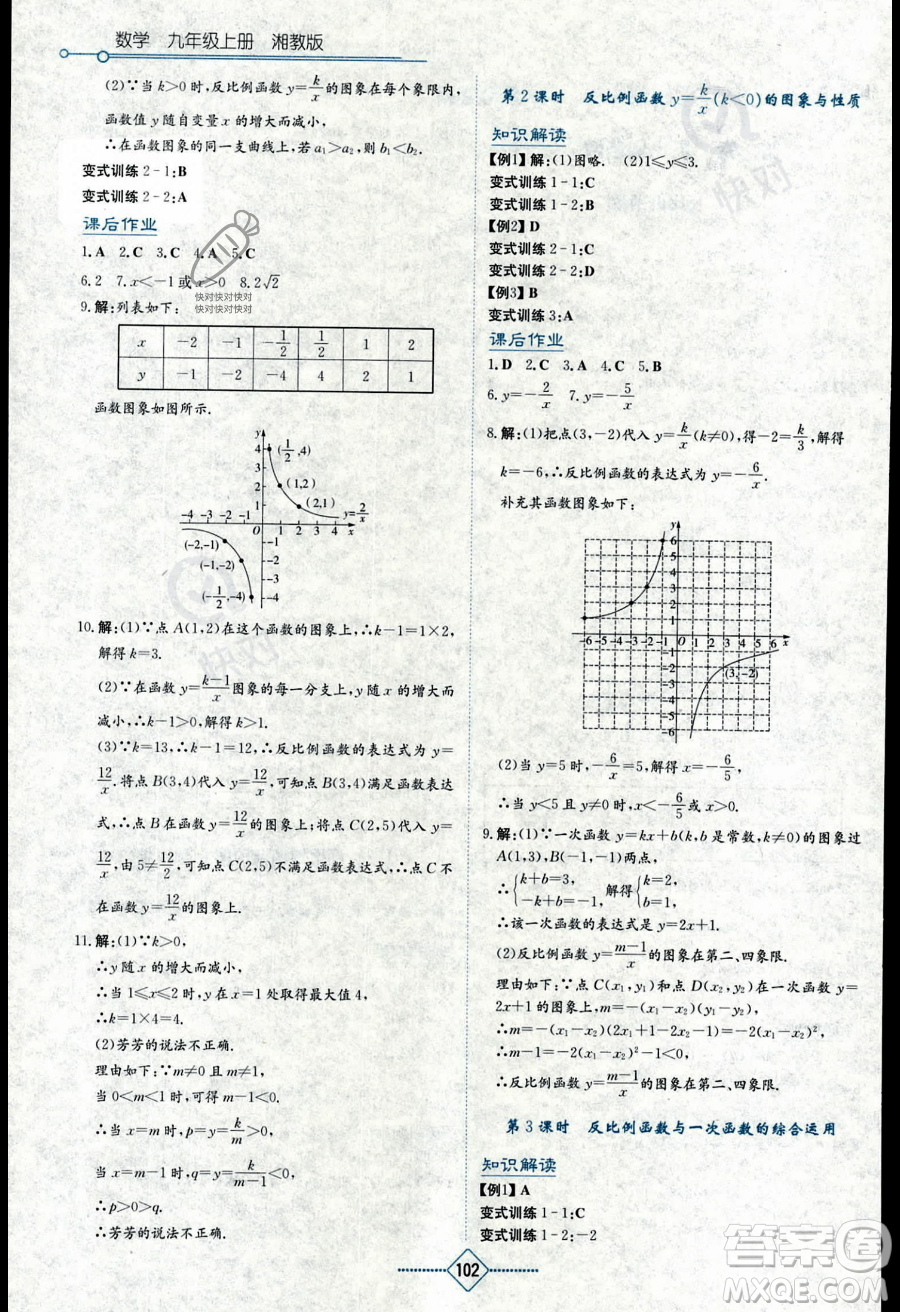 数学 九年级上册 湘教版
(2)∵当 k>0 时,反比例函数 y=k/x 的图象在每个象限内,
函数值 y 随自变量 x 的增大而减小,
∴在函数图象的同一支曲线上,若 a₁>a₂,则 b₁<b₂.
变式训练 2-1:B
变式训练 2-2:A
课后作业
1.A 2.C 3.C 4.A 5.C
6.2 7.x<-1或x>0 8.2√2
快对快对快对
快对快对快对
9.解:列表如下:
x -2 -1 -1/2 1/2 1 2
y -1 -2 -4 4 2 1
函数图象如图所示.
y
4 (1/2,4)
3
2 (1,2)
1 (2,1)
-4 -3 -2 -1 O 1 2 3 4 x y=2/x
(-2,-1) -1
(-1,-2) -2
-3
(-1/2,-4) -4
10.解:(1)∵点 A(1,2)在这个函数的图象上,∴k-1=1×2,
解得 k=3.
(2)∵在函数 y=(k-1)/x 图象的每一分支上,y 随 x 的增大而
减小,∴k-1>0,解得 k>1.
(3)∵k=13,∴k-1=12,∴反比例函数的表达式为 y=
12/x.将点 B(3,4)代入 y=12/x,可知点 B(3,4)满足函数表达
式,∴点 B 在函数 y=12/x 的图象上;将点 C(2,5)代入 y=
12/x,由 5≠12/2,可知点 C(2,5)不满足函数表达式,∴点 C 不
在函数 y=12/x 的图象上.
11.解:(1)∵k>0,
∴y 随 x 的增大而减小,
∴当 1≤x≤2 时,在 x=1 处取得最大值 4,
∴k=1×4=4.
(2)芳芳的说法不正确.
理由如下:∵m≠0,
∴当 0<m<1 时,
当 x=m 时,p=k/m>0,
当 x=m-1 时,q=k/(m-1)<0,
∴p>0>q.
∴芳芳的说法不正确.
第 2 课时 反比例函数 y=k/x(k<0)的图象与性质
知识解读
【例1】解:(1)图略. (2)1≤y≤3.
变式训练 1-1:C
变式训练 1-2:B
【例2】D
变式训练 2-1:C
变式训练 2-2:D
【例3】B
变式训练 3:A
课后作业
1.D 2.C 3.C 4.C 5.B
6.y=-2/x 7.y=-5/x
8.解:(1)把点(3,-2)代入 y=k/x(k≠0),得-2=k/3,解得
k=-6,∴反比例函数的表达式为 y=-6/x.
补充其函数图象如下:
y
6
5
4
3
2
1
-6 -5 -4 -3 -2 -1 O 1 2 3 4 5 6 x
-1
-2 (3,-2)
-3
-4
-5
-6
(2)当 y=5 时,-6/x=5,解得 x=-6/5,
∴当 y<5 且 y≠0 时,x<-6/5或 x>0.
9.解:(1)∵一次函数 y=kx+b(k,b 是常数,k≠0)的图象过
A(1,3),B(-1,-1)两点,
∴{k+b=3, -k+b=-1, 解得{k=2, b=1,
∴该一次函数的表达式为 y=2x+1.
(2)反比例函数 y=(m-1)/x 的图象在第二、四象限.
理由如下:∵点 C(x₁,y₁)和点 D(x₂,y₂)在一次函数 y=
2x+1 的图象上,∴y₁=2x₁+1,y₂=2x₂+1,
∴m=(x₁-x₂)(2x₁+1-2x₂-1)=2(x₁-x₂)²,
∵m=-2(x₁-x₂)²,x₁≠x₂,∴m<0,∴m-1<0,
∴反比例函数 y=(m-1)/x 的图象在第二、四象限.
第 3 课时 反比例函数与一次函数的综合运用
知识解读
【例1】A
变式训练 1-1:C
变式训练 1-2:-2
102
答案圈
MXQE.COM